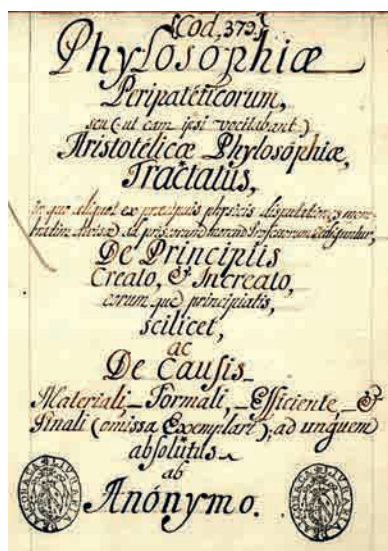 {Cod. 379.}
Phylosophiæ
Peripatéticorum,
seu (ut eam ipsi vocitabant)
Aristotélicæ Phylosóphiæ,
Tractatus,
in quo aliquot ex præcipuis physicis disputatiónes
De Princípiis
Creato, & Increato,
eorum que principiatis,
scílicet,
ac
De Causis
Materiali, Formali, Efficiente, &
Finali (omissa Exemplari), ad unguem
absolútus
ab
Anónymo.